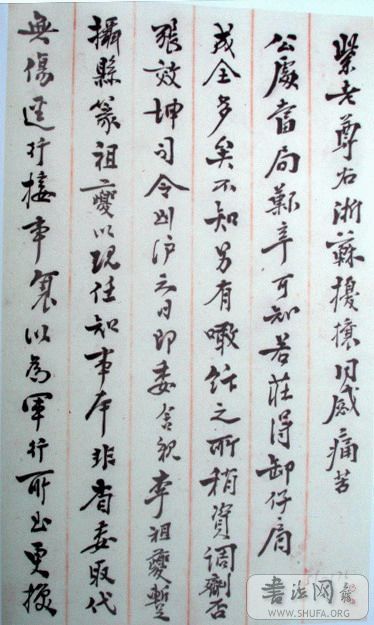 紫老尊右浙蘇擾攘同感痛苦
公處當局艱辛可知若莊得卸仔肩
成全多矣不知另有噉飯之所稍資調劑否
張效坤司令出沪之日即委舍親李祖夔暫
攝縣篆祖夔以現任知事本非省委取代
無傷行接事以為軍行所出更
書法网
WWW.SHUFA.ORG